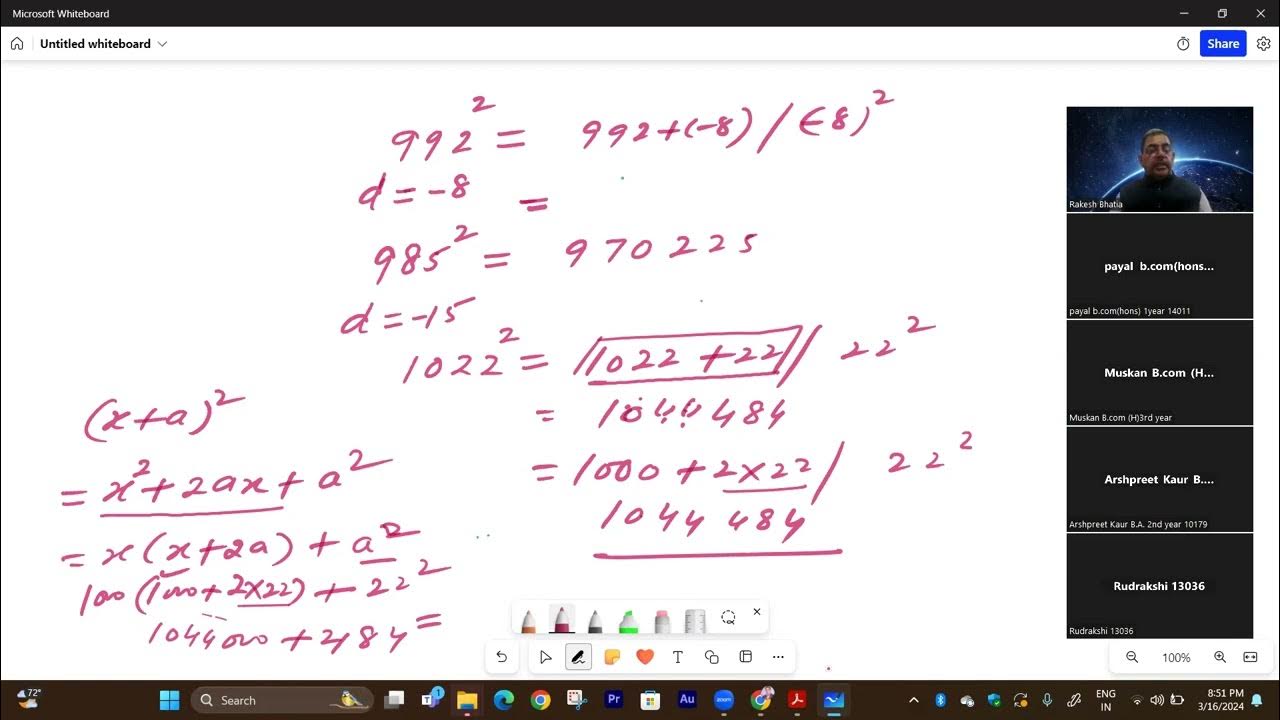 Microsoft Whiteboard
Untitled whiteboard
Share
992² = 992+(-8) / (-8)²
d = -8 =
985² = 970225
d = -15
1022² = /1022 + 22// 22²
= 1044484
= 1000 + 2×22 / 22²
1044 484
(x+a)²
= x² + 2ax + a²
= x(x+2a) + a²
1000(1000+2×22) + 22²
1044000 + 484 =
Rakesh Bhatia
payal b.com(hons...
payal b.com(hons) 1year 14011
Muskan B.com (H...
Muskan B.com (H)3rd year
Arshpreet Kaur B....
Arshpreet Kaur B.A. 2nd year 10179
Rudrakshi 13036
Rudrakshi 13036
100%
72°
Search
Pr
Au
zoom
ENG
IN
8:51 PM
3/16/2024